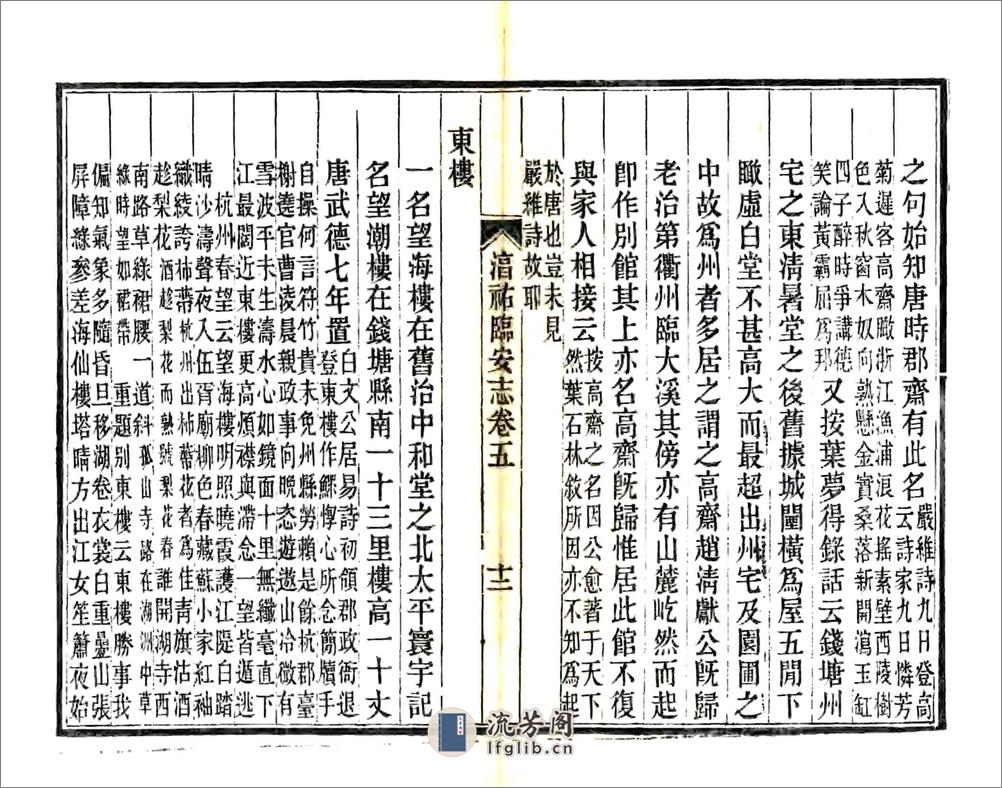 之句始知唐時郡齋有此名嚴維詩九日登高
云詩家九日憐芳
菊遲客高齋瞰浙江漁浦浪花搖素壁西陵樹
色入秋窗木奴向熟懸金實桑落新開瀉玉缸
四子醉時爭講德
笑論黃霸屈爲邦又按葉夢得錄話云錢塘州
宅之東淸暑堂之後舊據城闉橫爲屋五閒下
瞰虛白堂不甚高大而最超出州宅及園圃之
中故爲州者多居之謂之高齋趙淸獻公旣歸
老治第衢州臨大溪其傍亦有山麓屹然而起
卽作別館其上亦名高齋旣歸惟居此館不復
與家人相接云按高齋之名因公愈著于天下
然葉石林敘所因亦不知爲起
於唐也豈未見
嚴維詩故耶
湻祐臨安志卷五 十二
東樓
一名望海樓在舊治中和堂之北太平寰宇記
名望潮樓在錢塘縣南一十三里樓高一十丈
唐武德七年置白文公居易詩初領郡政衙退
登東樓作鰥惸心所念簡牘手
自操何言符竹貴未免州縣勞賴是餘杭郡臺
榭遶官曹淩晨親政事向晚恣遊遨山冷微有
雪波平未生濤水心如鏡面十里無纖毫直下
江最闊近東樓更高煩襟與滯念一望皆遁逃
杭州春望云望海樓明照曉霞護江隄白踏
晴沙濤聲夜入伍胥廟柳色春藏蘇小家紅袖
織綾誇柿蔕杭州出柿蔕花者爲佳靑旗沽酒
趁梨花酒趁梨花而熟號梨花春誰開湖寺西
南路草綠裙腰一道斜孤山寺路在湖洲中草
綠時望如裙帶重題別東樓云東樓勝事我
偏知氣象多隨昏旦移湖卷衣裳白重疊山張
屏障綠參差海仙樓塔晴方出江女笙簫夜始
流芳阁
lfglib.cn